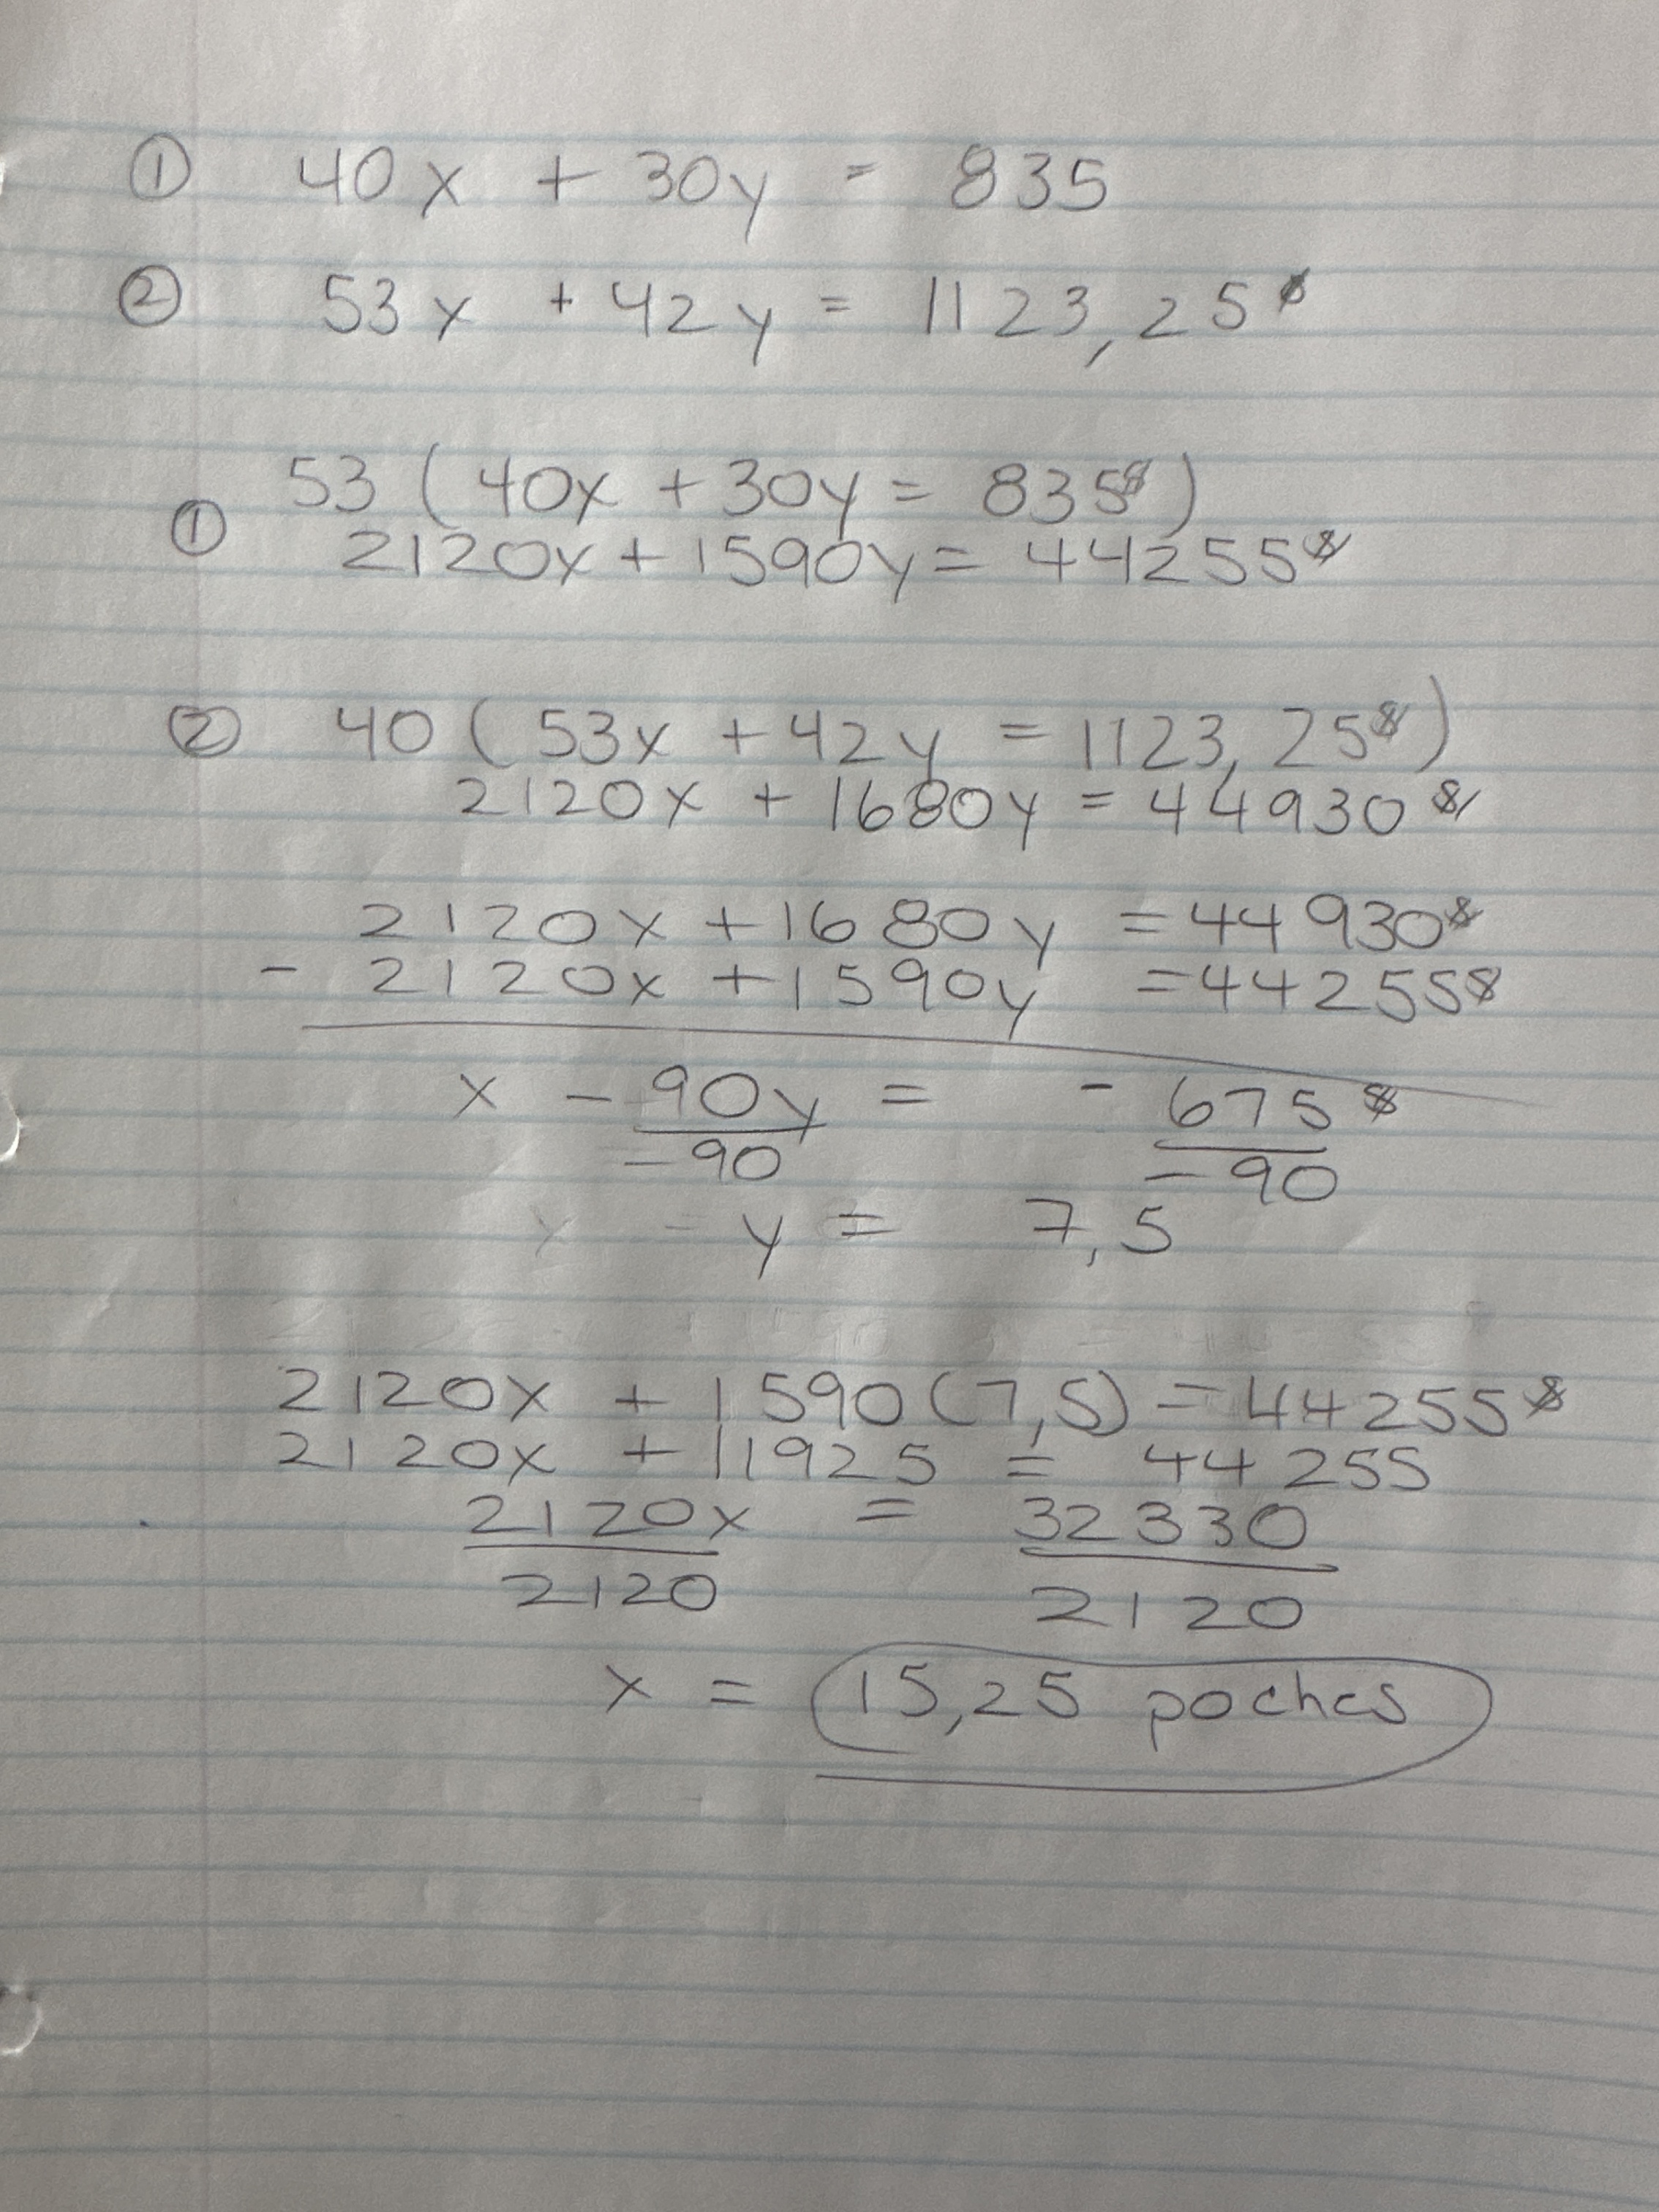 ① 40x + 30y = 835
② 53x + 42y = 1123,25$
53 ( 40x + 30y = 835$ )
① 2120x + 1590y = 44255$
② 40 ( 53x + 42y = 1123,25$ )
2120x + 1680y = 44930$
2120x + 1680y = 44930$
- 2120x + 1590y = 44255$
x - 90y = - 675$
-90 -90
y = 7,5
2120x + 1590(7,5) = 44255$
2120x + 11925 = 44255
2120x = 32330
2120 2120
x = 15,25 poches